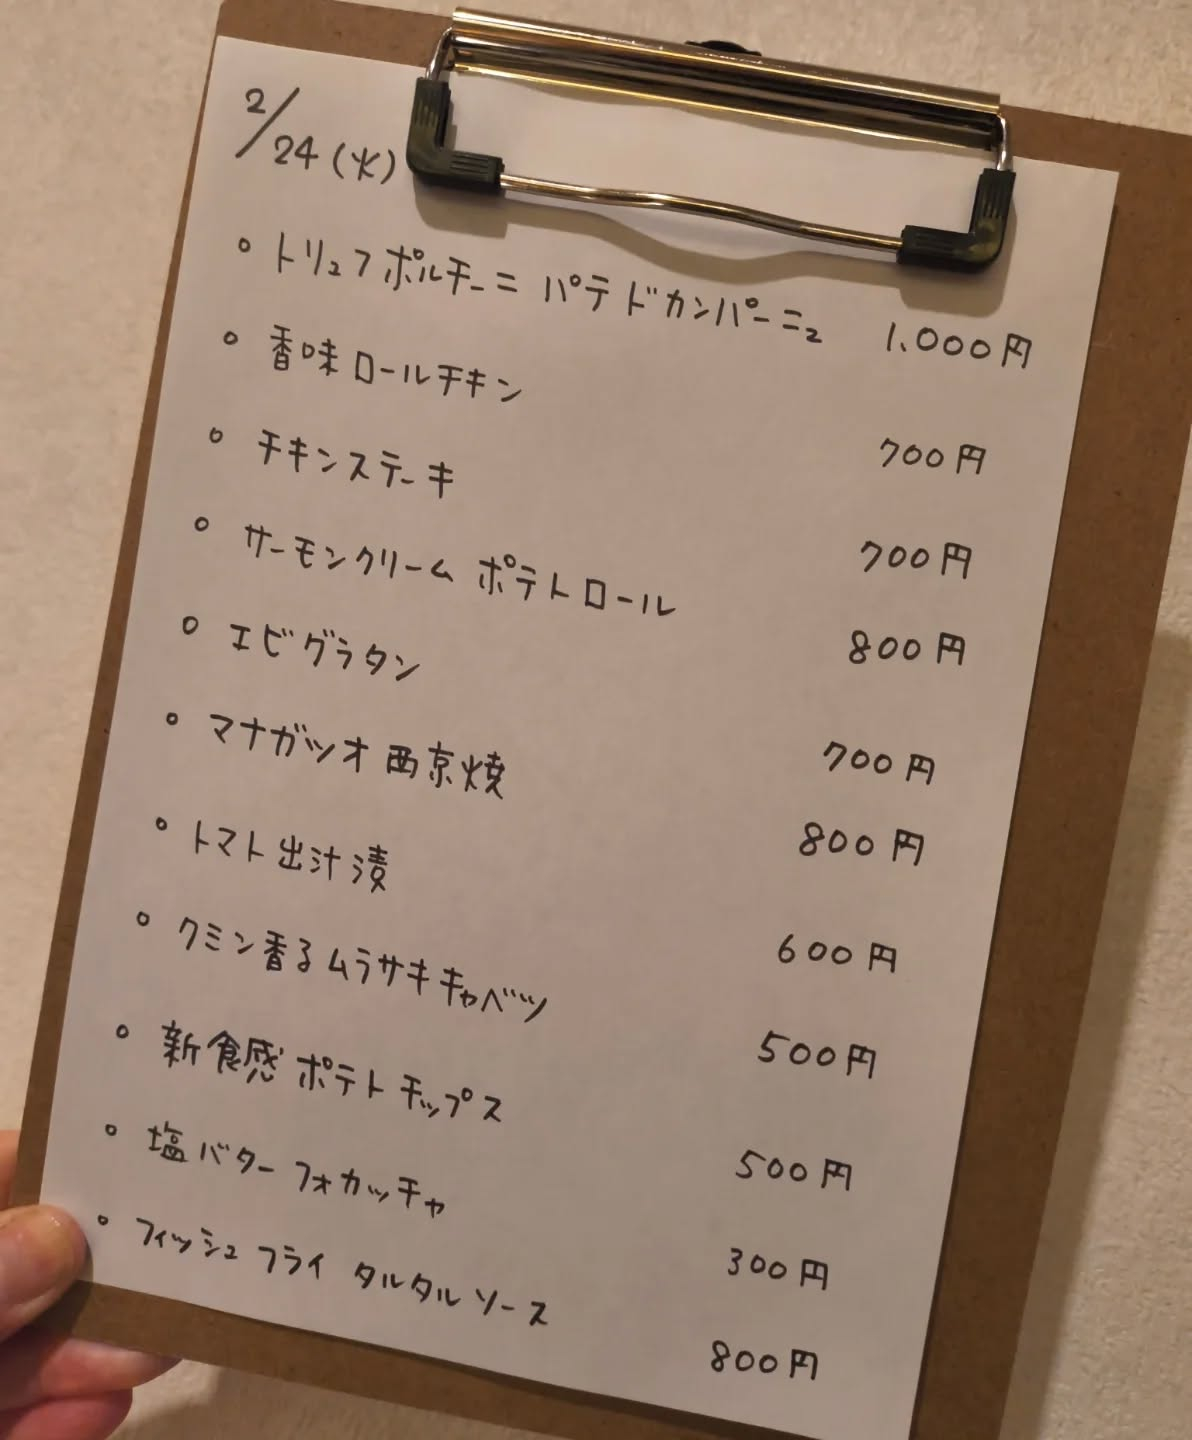 2/24(火)
・トリュフポルチーニ パテドカンパーニュ 1,000円
・香味ロールチキン 700円
・チキンステーキ 700円
・サーモンクリーム ポテトロール 800円
・エビグラタン 700円
・マナガツオ西京焼 800円
・トマト出汁漬 600円
・クミン香るムラサキキャベツ 500円
・新食感ポテトチップス 500円
・塩バターフォカッチャ 300円
・フィッシュフライ タルタルソース 800円